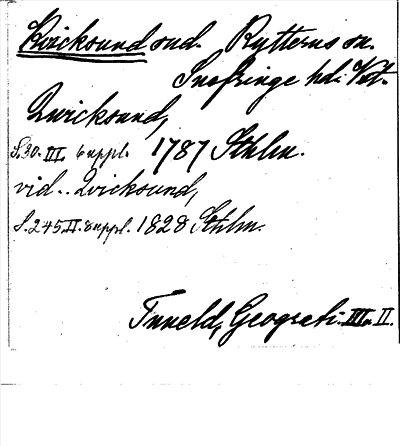 Kvicksund sud. Rytterns sn.
Snefringe hd. Vst.
Qwicksund,
S. 30. III. 6 uppl. 1787 Sthlm.
vid.. Qvicksund,
S. 245 II. 8 uppl. 1828 Sthlm.
Tuneld, Geografi. III o. II.